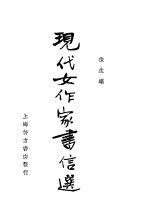 現代女作家書信選
上海仿古書店發行